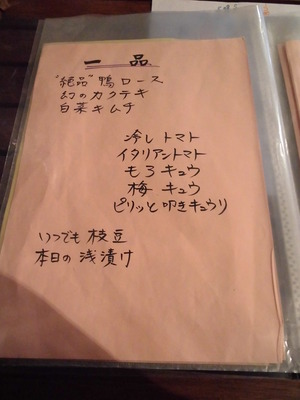 一品
"絶品" 鴨ロース
幻のカクテキ
白菜キムチ
冷し トマト
イタリアントマト
もろキュウ
梅 キュウ
ピリッと叩きキュウリ
いつでも 枝豆
本日の 浅漬け